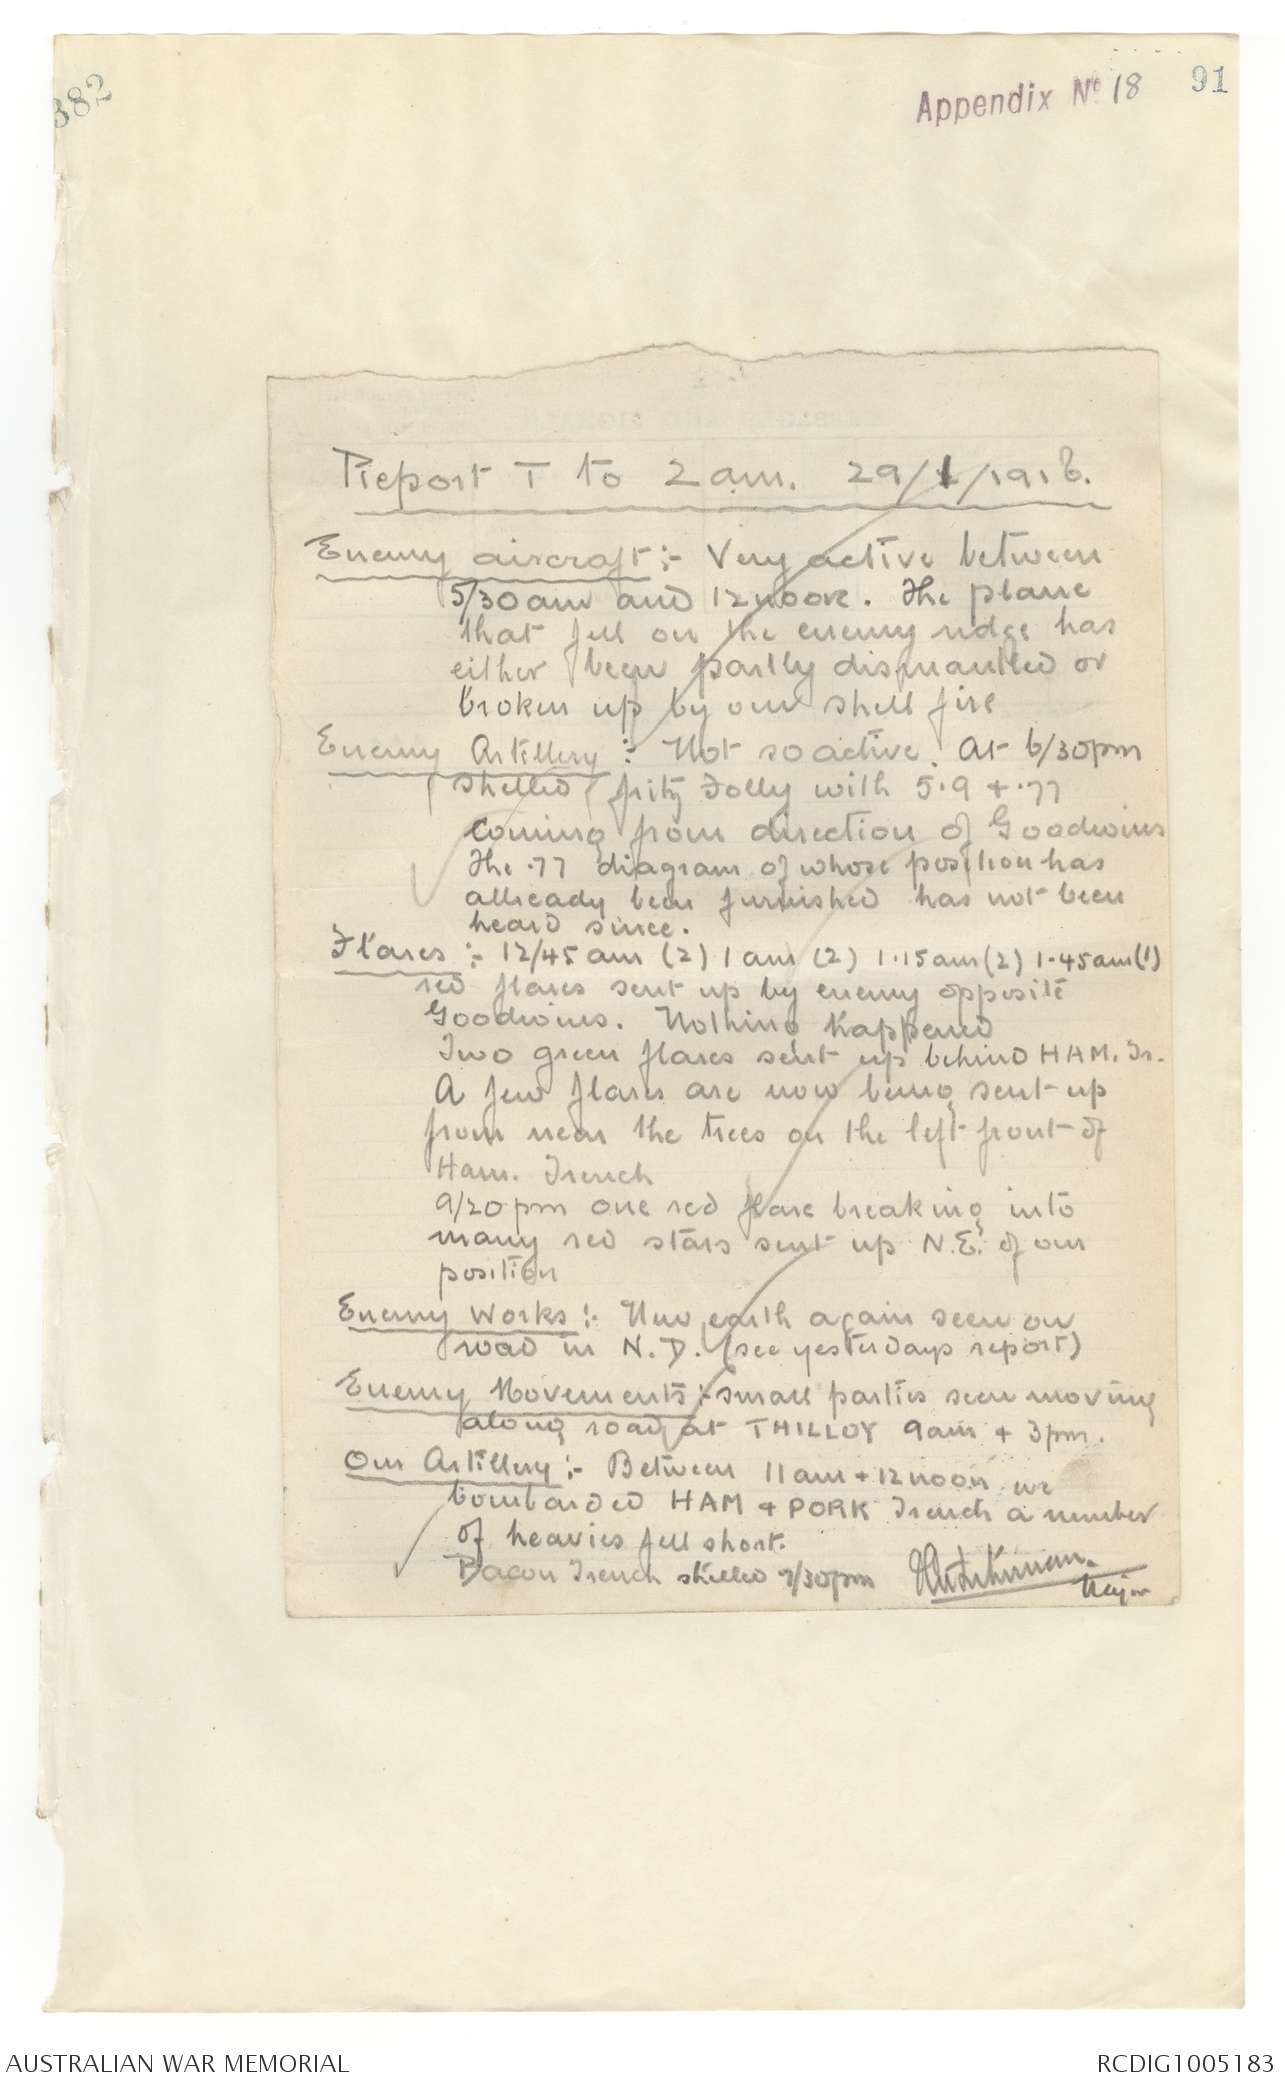 382
Appendix No 18
91
Report T to 2 am. 29/1/1916.
Enemy aircraft :- Very active between
5/30 am and 12 noon. The plane
that fell on the enemy ridge has
either been partly dismantled or
broken up by our shell fire
Enemy Artillery :- Not so active. At 6/30pm
shelled fritz Folly with 5.9 + .77
coming from direction of Goodwins
The .77 diagram of whose position has
allready been furnished has not been
heard since.
Flares :- 12/45 am (2) 1 am (2) 1.15am (2) 1.45am (1)
red flares sent up by enemy opposite
Goodwins. Nothing happened
Two green flares sent up behind HAM. Tr.
A few flares are now being sent up
from near the trees on the left front of
Ham. Trench
9/20 pm one red flare breaking into
many red stars sent up N.E. of our
position
Enemy Works :- New earth again seen on
road in N.D. (see yesterdays report)
Enemy Movements :- small parties seen moving
along road at THILLOY 9am + 3pm.
Our Artillery :- Between 11am + 12 noon we
bombarded HAM + PORK Trench a number
of heavies fell short.
Bacon Trench shelled 7/30pm
Major
AUSTRALIAN WAR MEMORIAL
RCDIG1005183